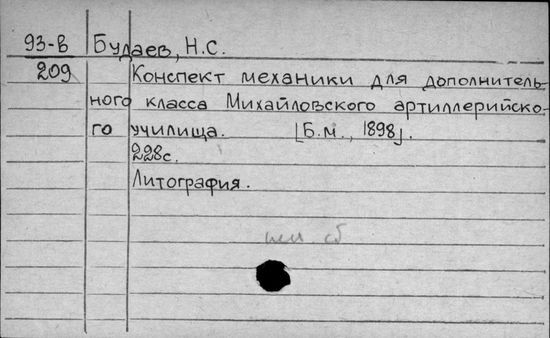 93-В Будаев, Н.С.
209 Конспект механики для дополнитель-
ного класса Михайловского артиллерийско-
го училища. [Б.м., 1898].
228с.
Литография.